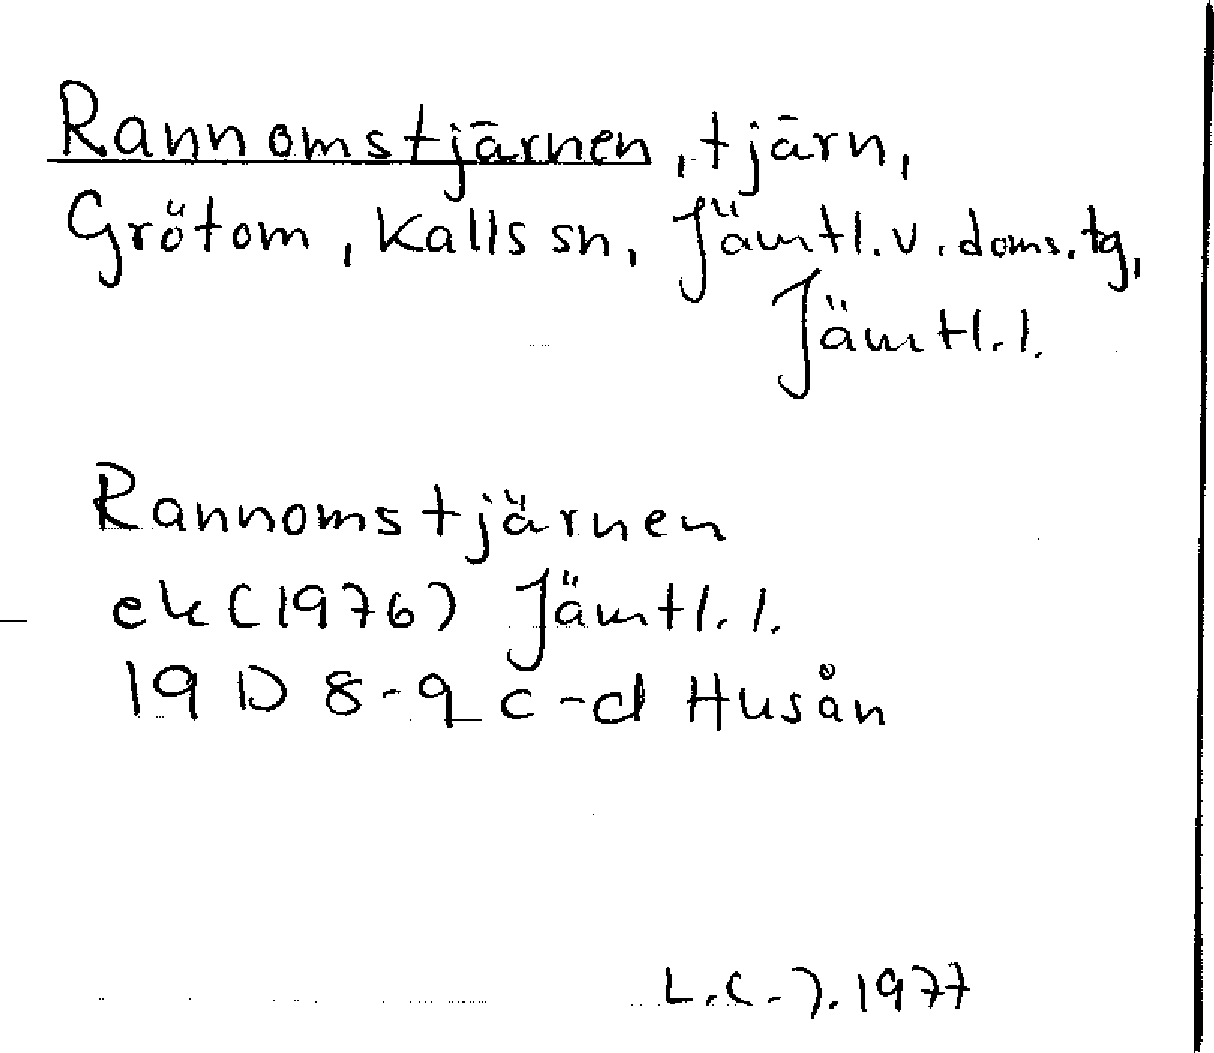 Rannomstjärnen, tjärn,
Grötom, Kalls sn, Jämtl. v. doms. tg,
Jämtl. l.
Rannomstjärnen
ek (1976) Jämtl. l.
19 D 8-9 c-d Husån
1977